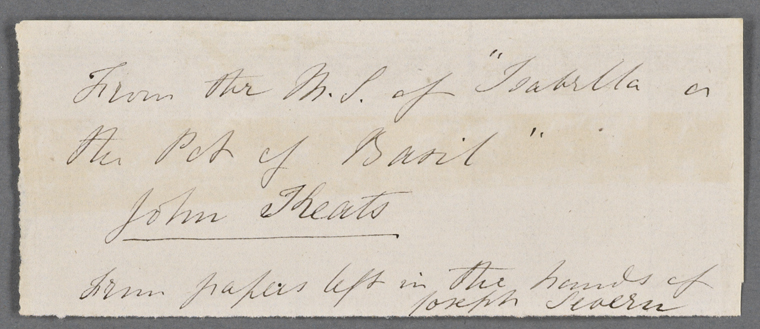 From the M.S. of "Isabella or
the Pot of Basil"
John Keats
From papers left in the hands of
Joseph Severn